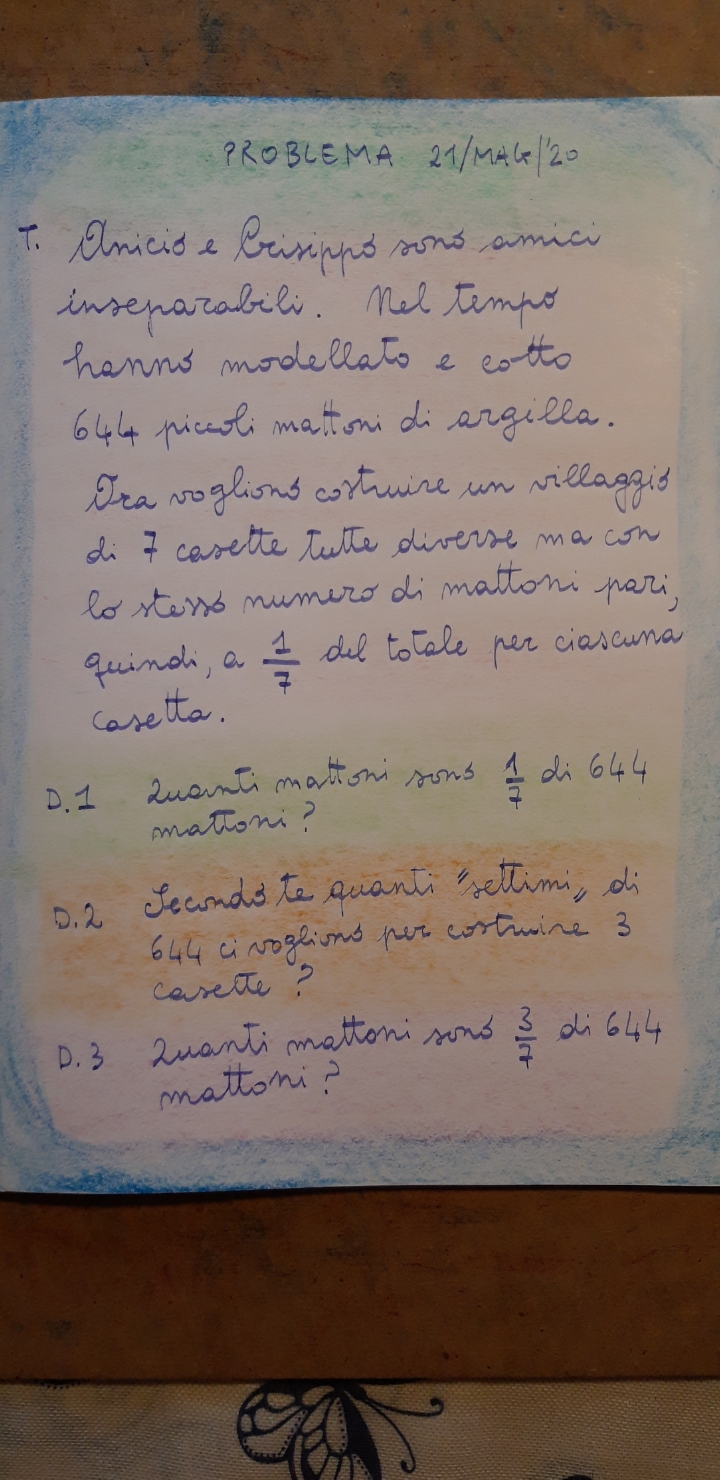 PROBLEMA 21/MAG/'20
T. Anicio e Crisippo sono amici
inseparabili. Nel tempo
hanno modellato e cotto
644 piccoli mattoni di argilla.
Ora vogliono costruire un villaggio
di 7 casette tutte diverse ma con
lo stesso numero di mattoni pari,
quindi, a 1/7 del totale per ciascuna
casetta.
D.1 Quanti mattoni sono 1/7 di 644
mattoni?
D.2 Secondo te quanti "settimi„ di
644 ci vogliono per costruire 3
casette?
D.3 Quanti mattoni sono 3/7 di 644
mattoni?